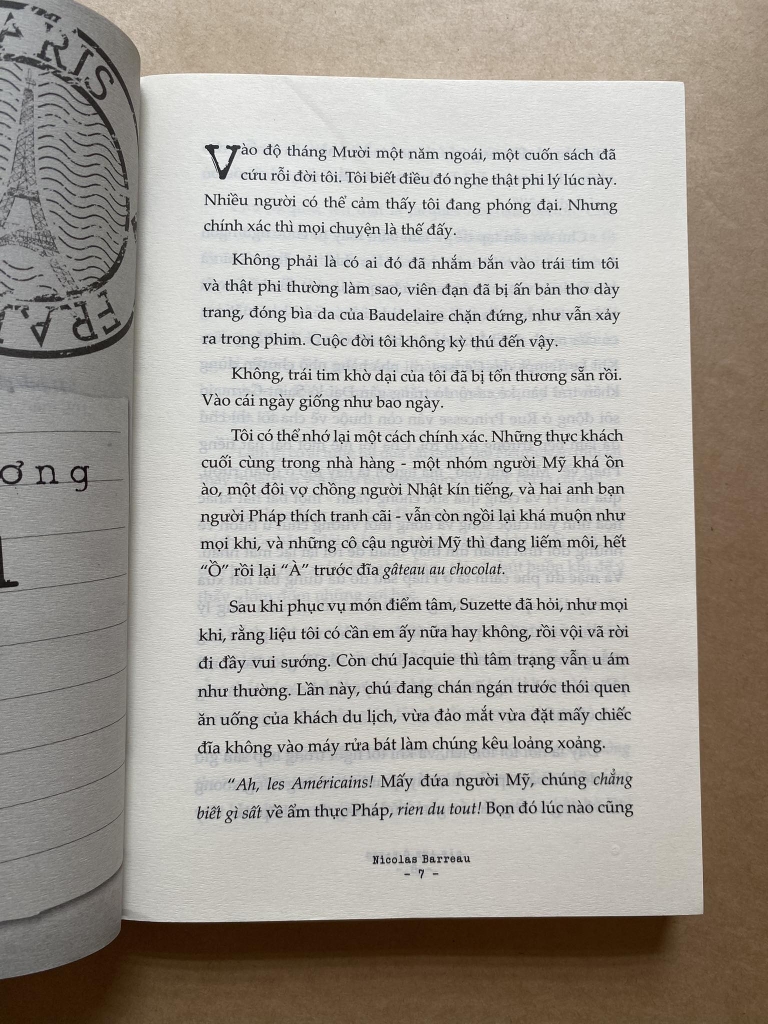 PARIS
FRA
ơng
Vào độ tháng Mười một năm ngoái, một cuốn sách đã
cứu rỗi đời tôi. Tôi biết điều đó nghe thật phi lý lúc này.
Nhiều người có thể cảm thấy tôi đang phóng đại. Nhưng
chính xác thì mọi chuyện là thế đấy.
Không phải là có ai đó đã nhắm bắn vào trái tim tôi
và thật phi thường làm sao, viên đạn đã bị ấn bản thơ dày
trang, đóng bìa da của Baudelaire chặn đứng, như vẫn xảy
ra trong phim. Cuộc đời tôi không kỳ thú đến vậy.
Không, trái tim khờ dại của tôi đã bị tổn thương sẵn rồi.
Vào cái ngày giống như bao ngày.
Tôi có thể nhớ lại một cách chính xác. Những thực khách
cuối cùng trong nhà hàng - một nhóm người Mỹ khá ồn
ào, một đôi vợ chồng người Nhật kín tiếng, và hai anh bạn
người Pháp thích tranh cãi - vẫn còn ngồi lại khá muộn như
mọi khi, và những cô cậu người Mỹ thì đang liếm môi, hết
“Ồ” rồi lại “À” trước đĩa gâteau au chocolat.
Sau khi phục vụ món điểm tâm, Suzette đã hỏi, như mọi
khi, rằng liệu tôi có cần em ấy nữa hay không, rồi vội vã rời
đi đầy vui sướng. Còn chú Jacquie thì tâm trạng vẫn u ám
như thường. Lần này, chú đang chán ngán trước thói quen
ăn uống của khách du lịch, vừa đảo mắt vừa đặt mấy chiếc
đĩa không vào máy rửa bát làm chúng kêu loảng xoảng.
“Ah, les Américains! Mấy đứa người Mỹ, chúng chẳng
biết gì sất về ẩm thực Pháp, rien du tout! Bọn đó lúc nào cũng
Nicolas Barreau
- 7 -